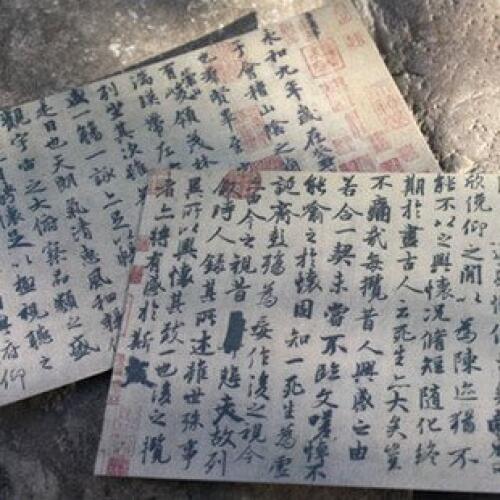 永和九年歲在癸
于會稽山陰之
也羣賢畢至
峻領茂林
湍映帶左
列坐其次雖
盛一觴一詠亦足以暢
是日也天朗氣清惠風和暢
觀宇宙之大俯察品類之盛
騁懷足以極視聽之
與俯仰
欣俛仰之間以為陳迹猶不
能不以之興懷況脩短隨化終
期於盡古人云死生亦大矣豈
不痛哉每攬昔人興感之由
若合一契未嘗不臨文嗟悼不
能喻之於懷固知一死生為虛
誕齊彭殤為妄作後之視今
由今之視昔悲夫故列
敘時人錄其所述雖世殊事
異所以興懷其致一也後之攬
者亦將有感於斯文